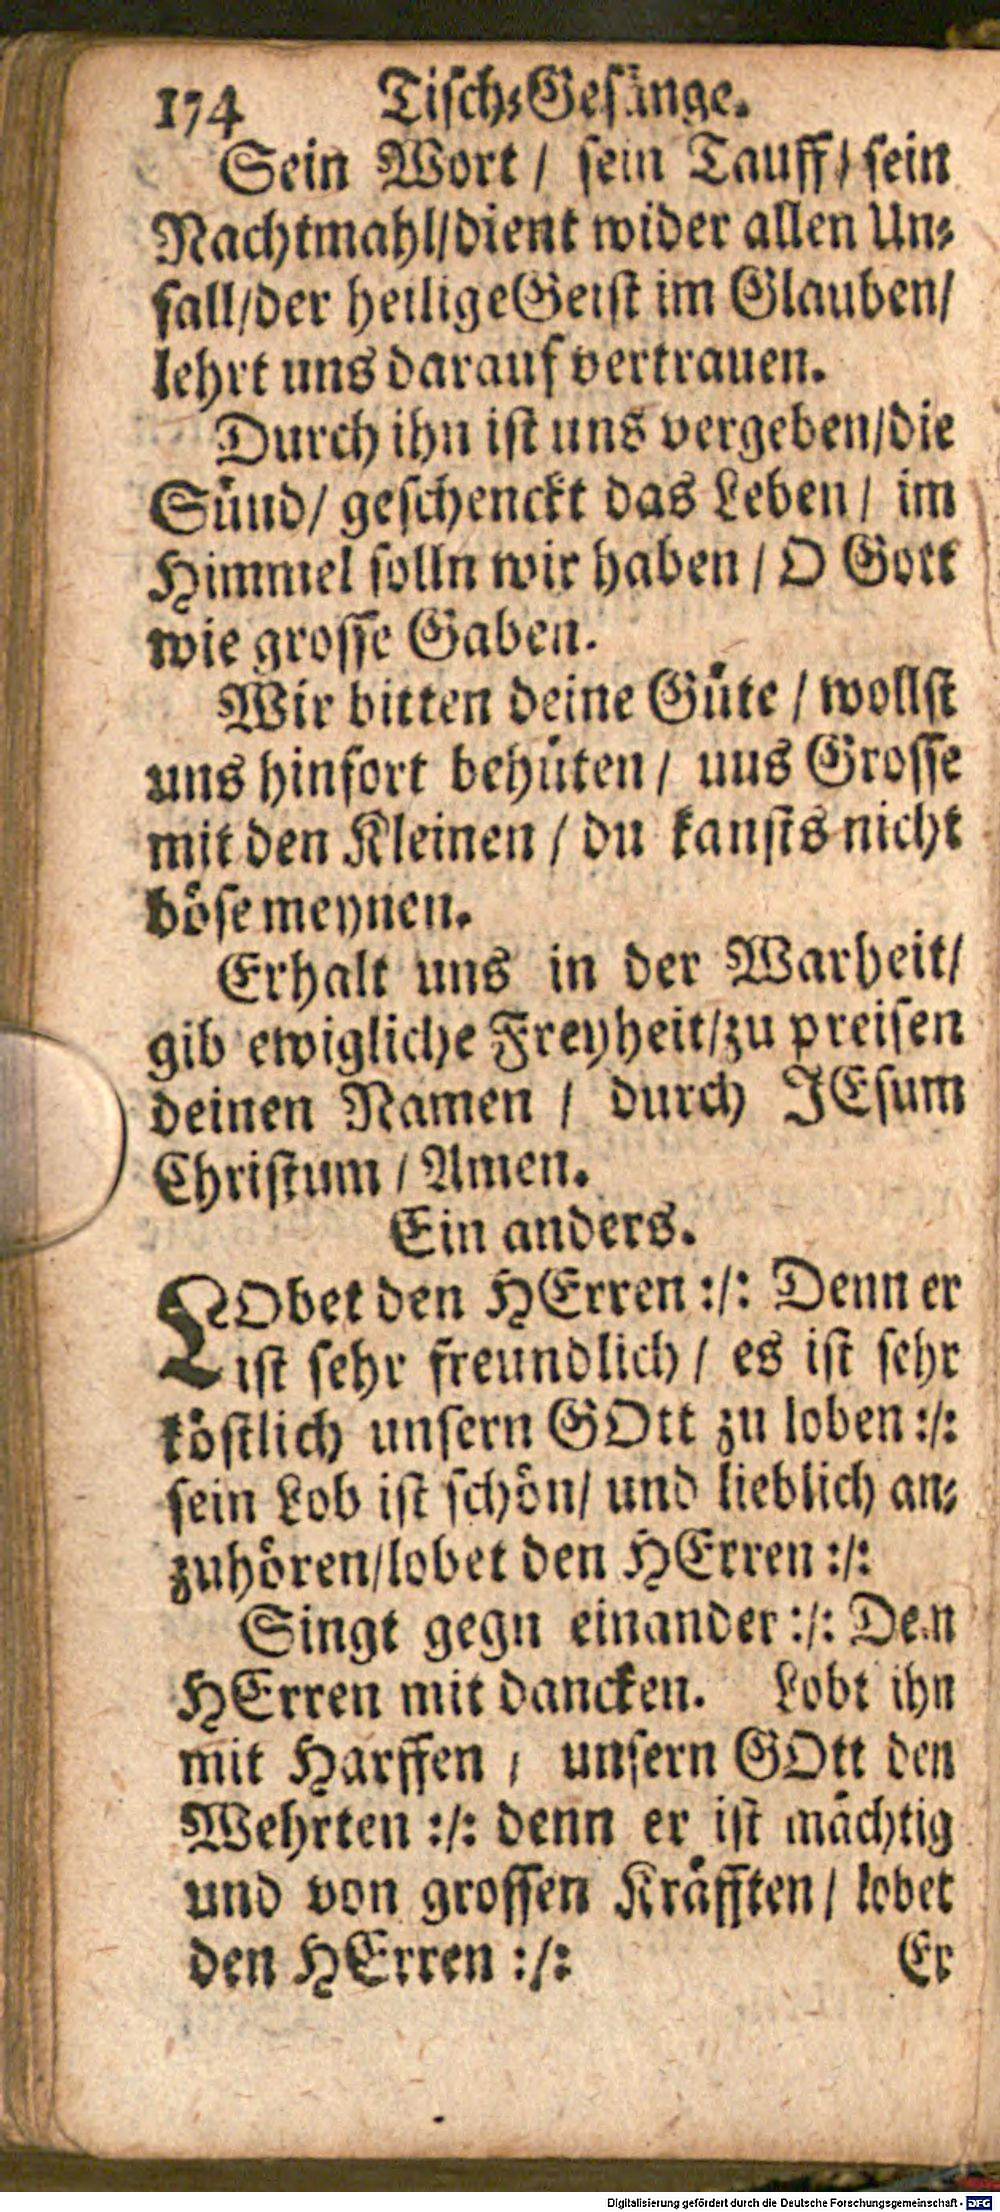 174 Tisch⸗Gesänge.
Sein Wort / sein Tauff / sein
Nachtmahl/dient wider allen Un⸗
fall/der heilige Geist im Glauben/
lehrt uns darauf vertrauen.
Durch ihn ist uns vergeben/die
Sünd/ geschenckt das Leben / im
Himmel solln wir haben / O Gott
wie grosse Gaben.
Wir bitten deine Güte / wollst
uns hinfort behüten / uns Grosse
mit den Kleinen / du kansts nicht
böse meynen.
Erhalt uns in der Warheit/
gib ewigliche Freyheit/zu preisen
deinen Namen / durch JEsum
Christum / Amen.
Ein anders.
LObet den HErren :/: Denn er
ist sehr freundlich / es ist sehr
köstlich unsern GOtt zu loben :/:
sein Lob ist schön/ und lieblich an⸗
zuhören/lobet den HErren :/:
Singt gegn einander :/: Den
HErren mit dancken. Lobt ihn
mit Harffen / unsern GOtt den
Wehrten :/: denn er ist mächtig
und von grossen Kräfften / lobet
den HErren :/: Er
Digitalisierung gefördert durch die Deutsche Forschungsgemeinschaft - DFG